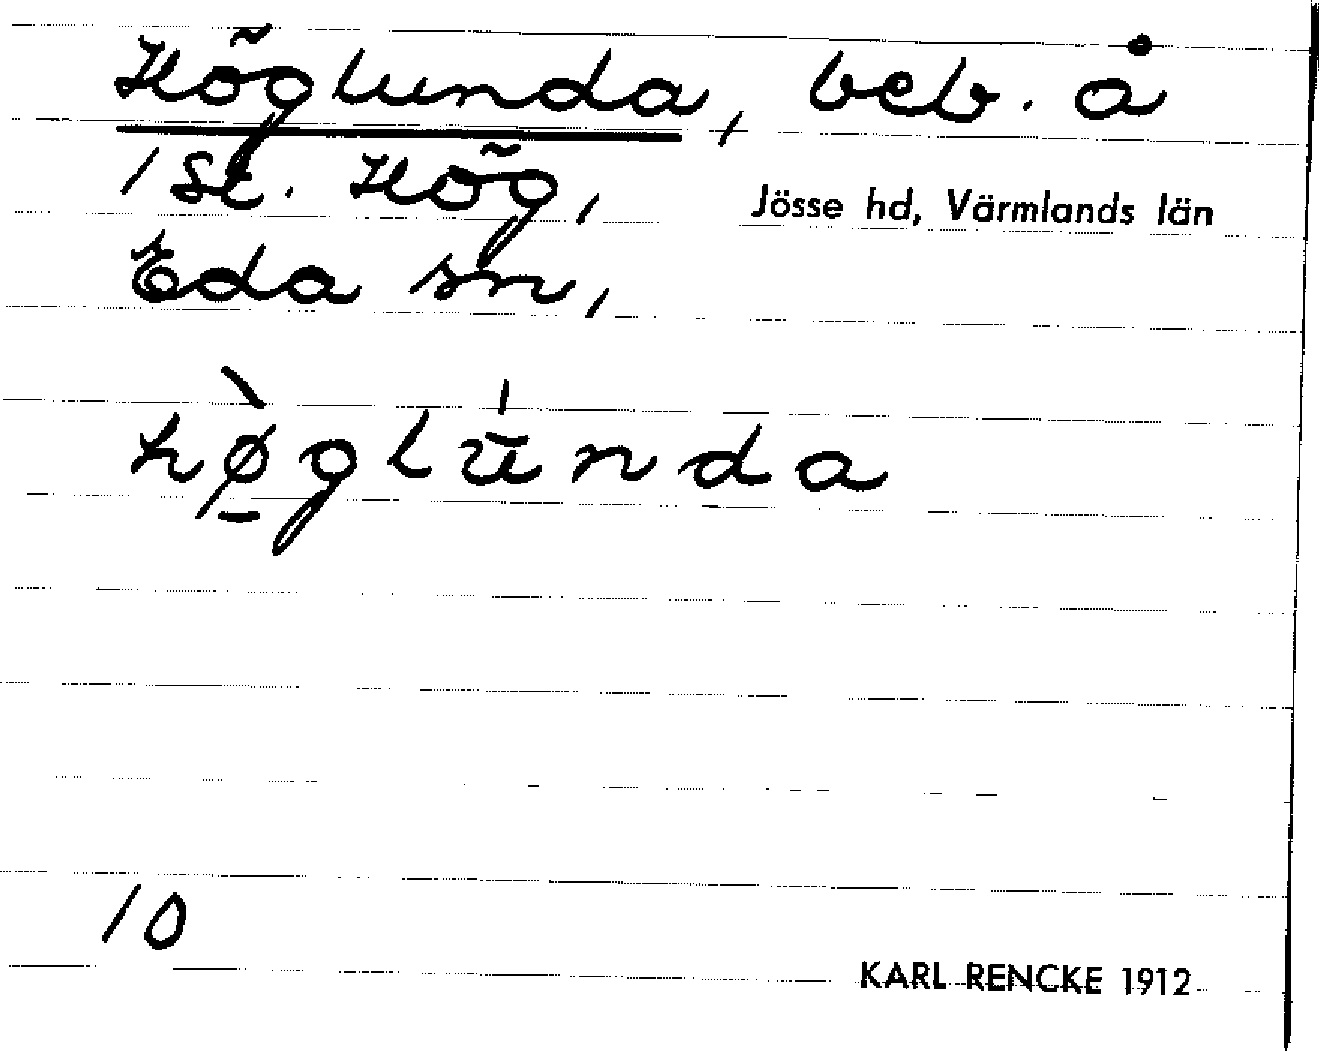 Höglunda, beb. å
1 St. Hög,
Jösse hd, Värmlands län
Eda sn,
hø̱̀glu̇nda
10
KARL RENCKE 1912